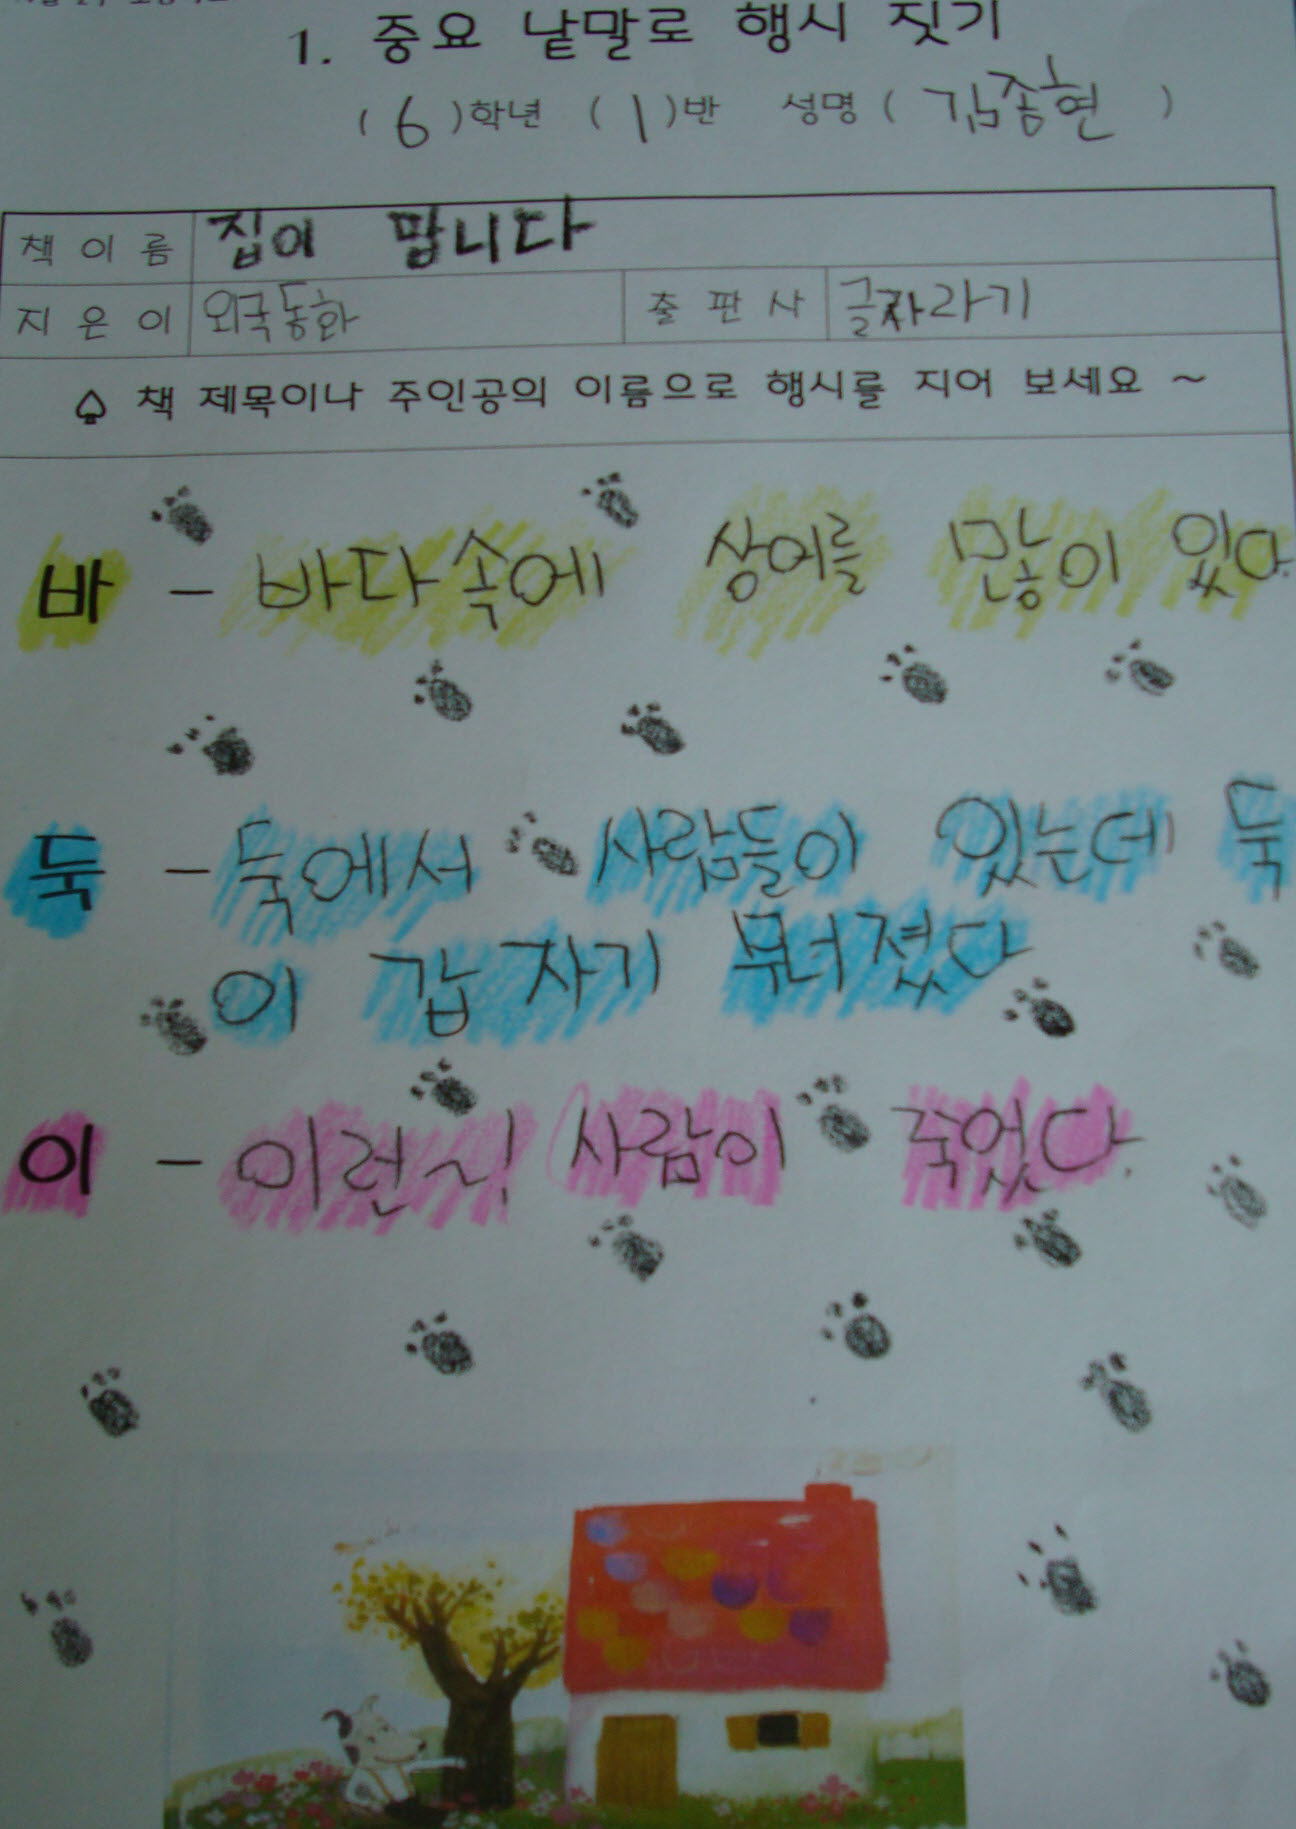 1. 중요 낱말로 행시 짓기
( 6 )학년 ( 1 )반 성명 ( 김종현 )
책 이 름 집이 팝니다
지 은 이 외국동화 출 판 사 글자라기
♤ 책 제목이나 주인공의 이름으로 행시를 지어 보세요 ~
바 - 바다속에 상어를 많이 있다.
둑 - 둑에서 사람들이 있는데 둑
이 갑자기 부너졌다
이 - 이런~! 사람이 죽었다.